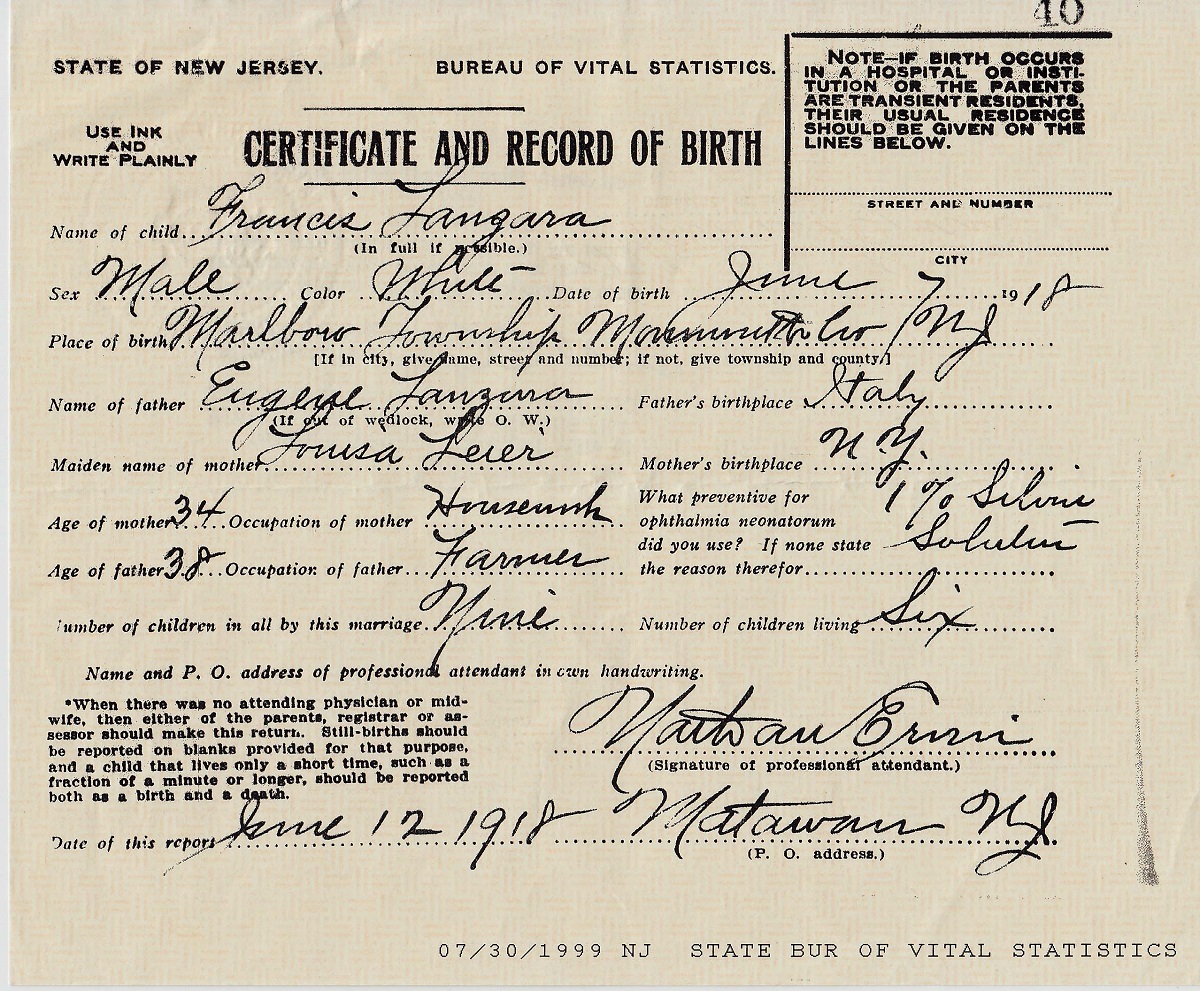 40
STATE OF NEW JERSEY. BUREAU OF VITAL STATISTICS.
USE INK AND WRITE PLAINLY
CERTIFICATE AND RECORD OF BIRTH
NOTE—IF BIRTH OCCURS
IN A HOSPITAL OR INSTI-
TUTION OR THE PARENTS
ARE TRANSIENT RESIDENTS,
THEIR USUAL RESIDENCE
SHOULD BE GIVEN ON THE
LINES BELOW.
STREET AND NUMBER
CITY
Name of child Francis Langara
(In full if possible.)
Sex Male Color White Date of birth June 7 1918
Place of birth Marlboro Township Monmouth Co NJ
[If in city, give name, street and number; if not, give township and county.]
Name of father Eugene Lanzara Father's birthplace Italy
(If out of wedlock, write O. W.)
Maiden name of mother Louisa Leier Mother's birthplace N.Y.
Age of mother 34 Occupation of mother Housework
Age of father 38 Occupation of father Farmer
What preventive for 1% Silver
ophthalmia neonatorum
did you use? If none state Solution
the reason therefor
Number of children in all by this marriage Nine Number of children living Six
Name and P. O. address of professional attendant in own handwriting.
*When there was no attending physician or mid-
wife, then either of the parents, registrar or as-
sessor should make this return. Still-births should
be reported on blanks provided for that purpose,
and a child that lives only a short time, such as a
fraction of a minute or longer, should be reported
both as a birth and a death.
(Signature of professional attendant.)
Date of this report June 12 1918 Matawan NJ
(P. O. address.)
07/30/1999 NJ STATE BUR OF VITAL STATISTICS